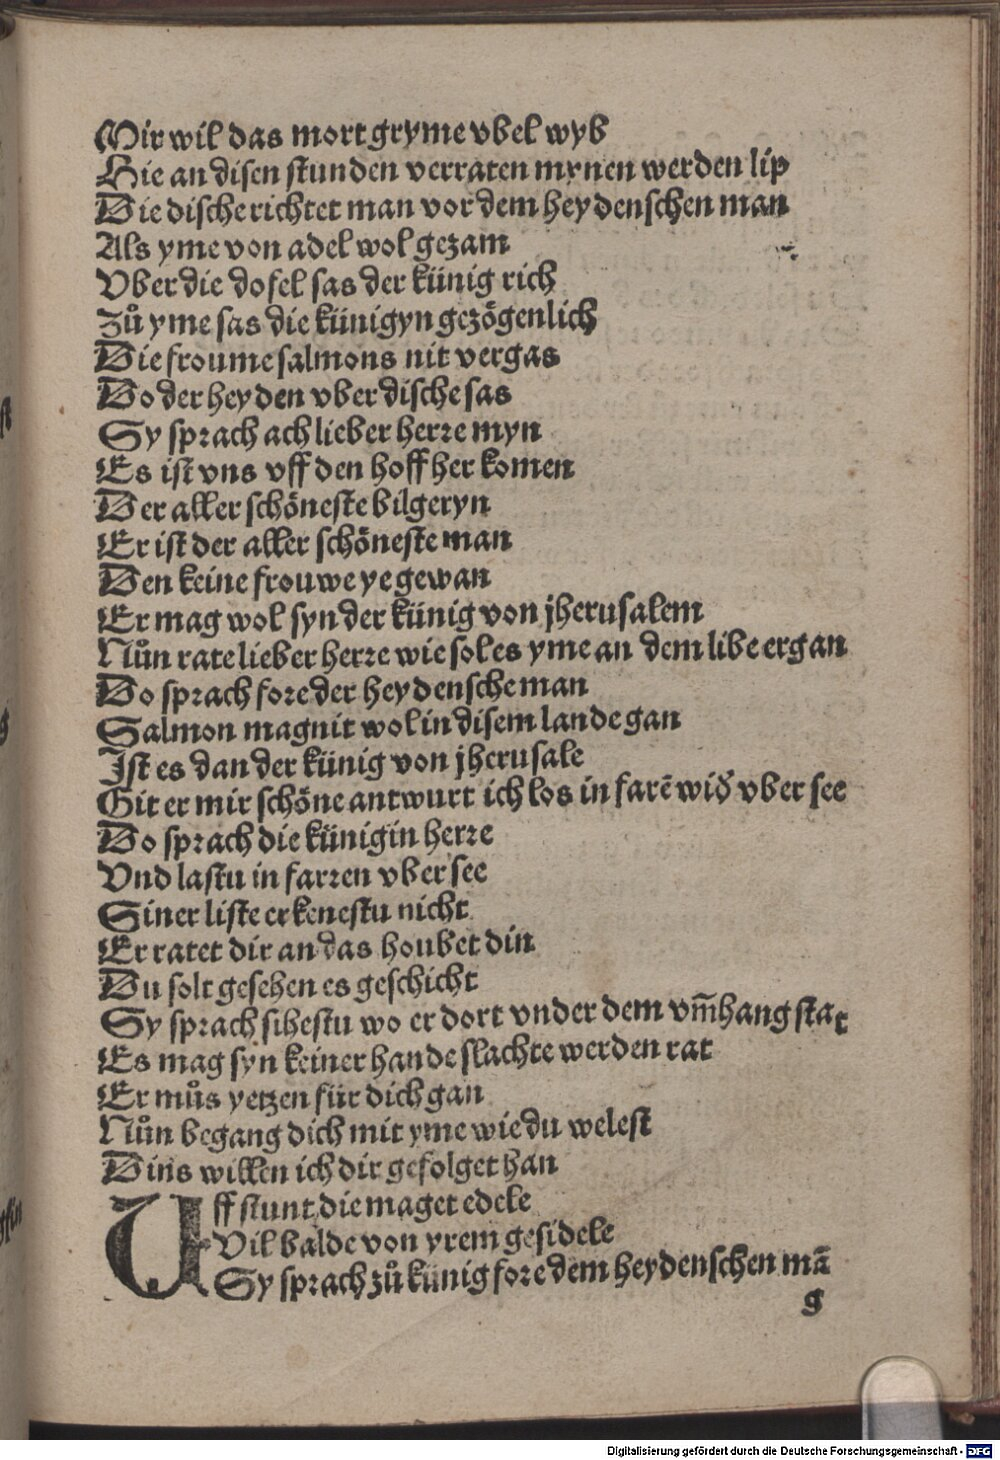 Mir wil das mort gryme vbel wyb
Hie an disen stunden verraten mynen werden lip
Die dische richtet man vor dem heydenschen man
Als yme von adel wol gezam
Vber die dofel sas der künig rich
Zů yme sas die künigyn gezögenlich
Die froume salmons nit vergas
Do der heyden vber dische sas
Sy sprach ach lieber herre myn
Es ist vns vff den hoff her komen
Der aller schöneste bilgeryn
Er ist der aller schöneste man
Den keine frouwe ye gewan
Er mag wol syn der künig von jherusalem
Nůn rate lieber herre wie sol es yme an dem libe ergan
Do sprach fore der heydensche man
Salmon mag nit wol in disem lande gan
Ist es dan der künig von jherusale
Git er mir schöne antwurt ich los in farē wid̛ vber see
Do sprach die künigin herre
Vnd lastu in farren vber see
Siner liste erkenestu nicht
Er ratet dir an das houbet din
Du solt gesehen es geschicht
Sy sprach sihestu wo er dort vnder dem vm̄hang stat
Es mag syn keiner hande slachte werden rat
Er můs yetzen für dich gan
Nůn begang dich mit yme wie du welest
Dins willen ich dir gefolget han
Uff stunt die maget edele
Vil balde von yrem gesidele
Sy sprach zů künig fore dem heydenschen mā
g
Digitalisierung gefördert durch die Deutsche Forschungsgemeinschaft - DFG